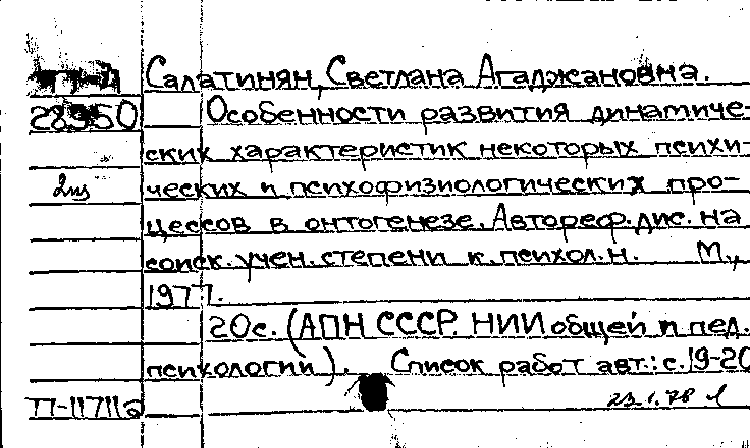 Салатинян, Светлана Агаджановна.
28950 Особенности развития динамиче-
ских характеристик некоторых психи-
2 из ческих и психофизиологических про-
цессов в онтогенезе. Автореф. дис. на
соиск. учен. степени к. психол. н. М.,
1977.
20с. (АПН СССР. НИИ общей и пед.
психологии). Список работ авт.: с. 19-20
П-11711а 23.1.78